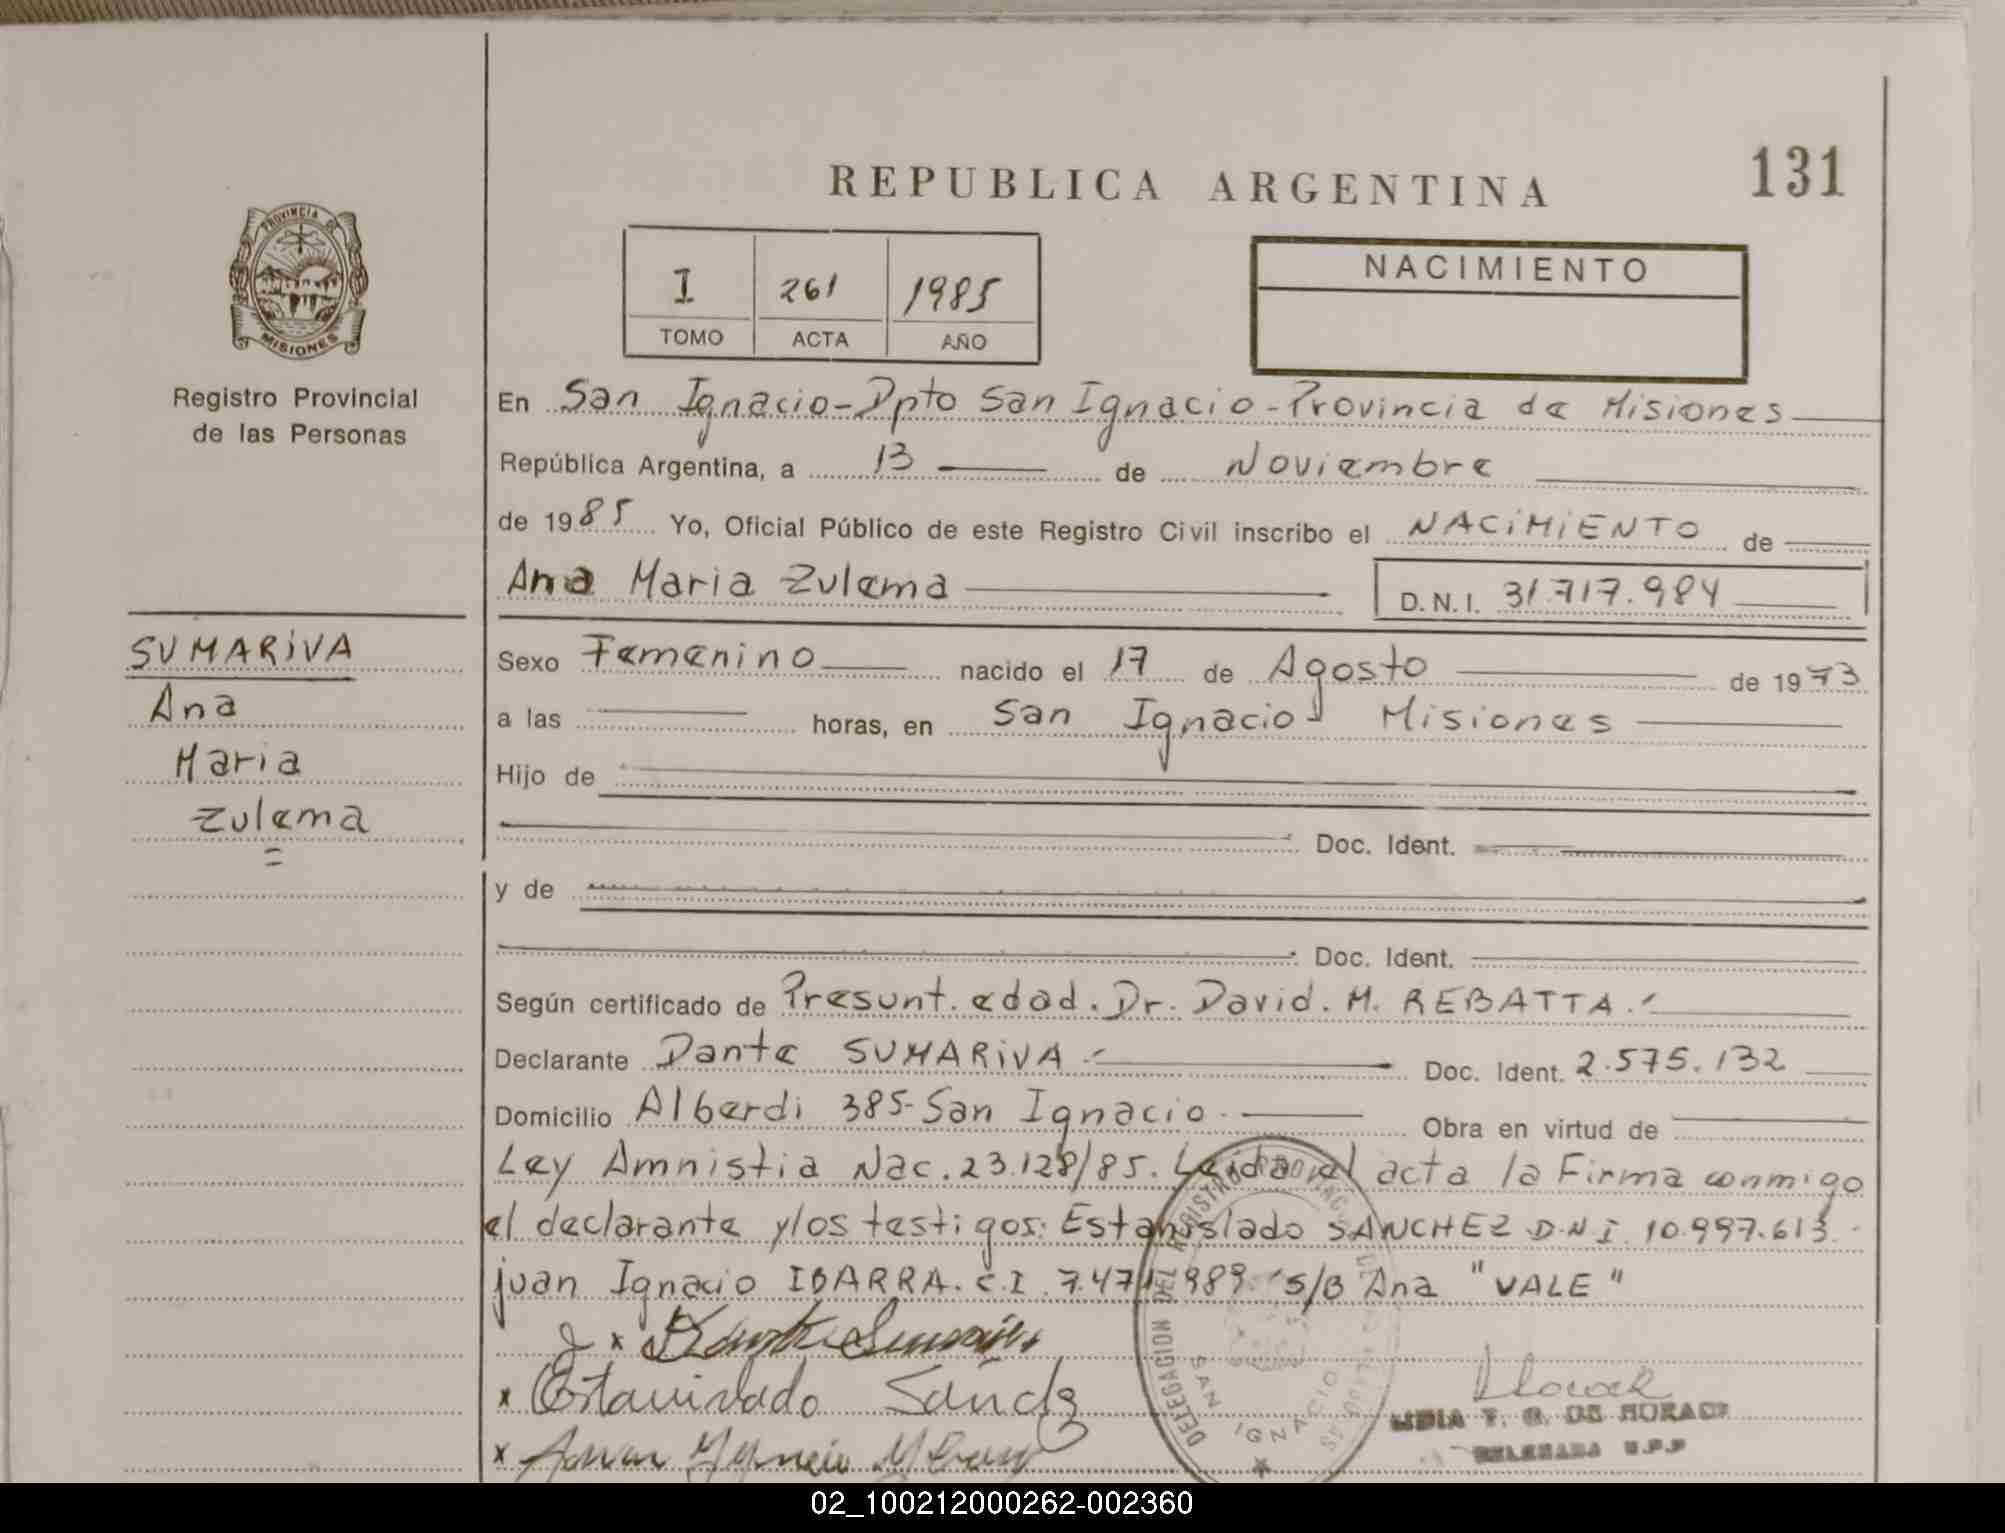 REPUBLICA ARGENTINA
131
PROVINCIA DE
MISIONES
Registro Provincial
de las Personas
I 261 1985
TOMO ACTA AÑO
NACIMIENTO
En San Ignacio-Dpto San Ignacio-Provincia de Misiones
República Argentina, a 13 de Noviembre
de 1985 Yo, Oficial Público de este Registro Civil inscribo el NACIMIENTO de
Ana Maria Zulema
D.N.I. 31.717.984
SUMARIVA
Ana
Maria
Zulema
Sexo Femenino nacido el 17 de Agosto de 1973
a las horas, en San Ignacio Misiones
Hijo de
Doc. Ident.
y de
Doc. Ident.
Según certificado de Presunt. edad. Dr. David. M. REBATTA.
Declarante Dante SUMARIVA Doc. Ident. 2.575.132
Domicilio Alberdi 385-San Ignacio Obra en virtud de
Ley Amnistia Nac. 23.128/85. Leida el acta la Firma conmigo
el declarante y/los testigos: Estanislado SANCHEZ D.N.I. 10.997.613
juan Ignacio IBARRA. C.I. 7.471.989. S/B Ana "VALE"
x Dante Sumariva
x Estanislado Sánchz
x Juan Ignacio Ibarra
DELEGACION DEL REGISTRO PROVINC. DE LAS PERSONAS
SAN IGNACIO
02_100212000262-002360